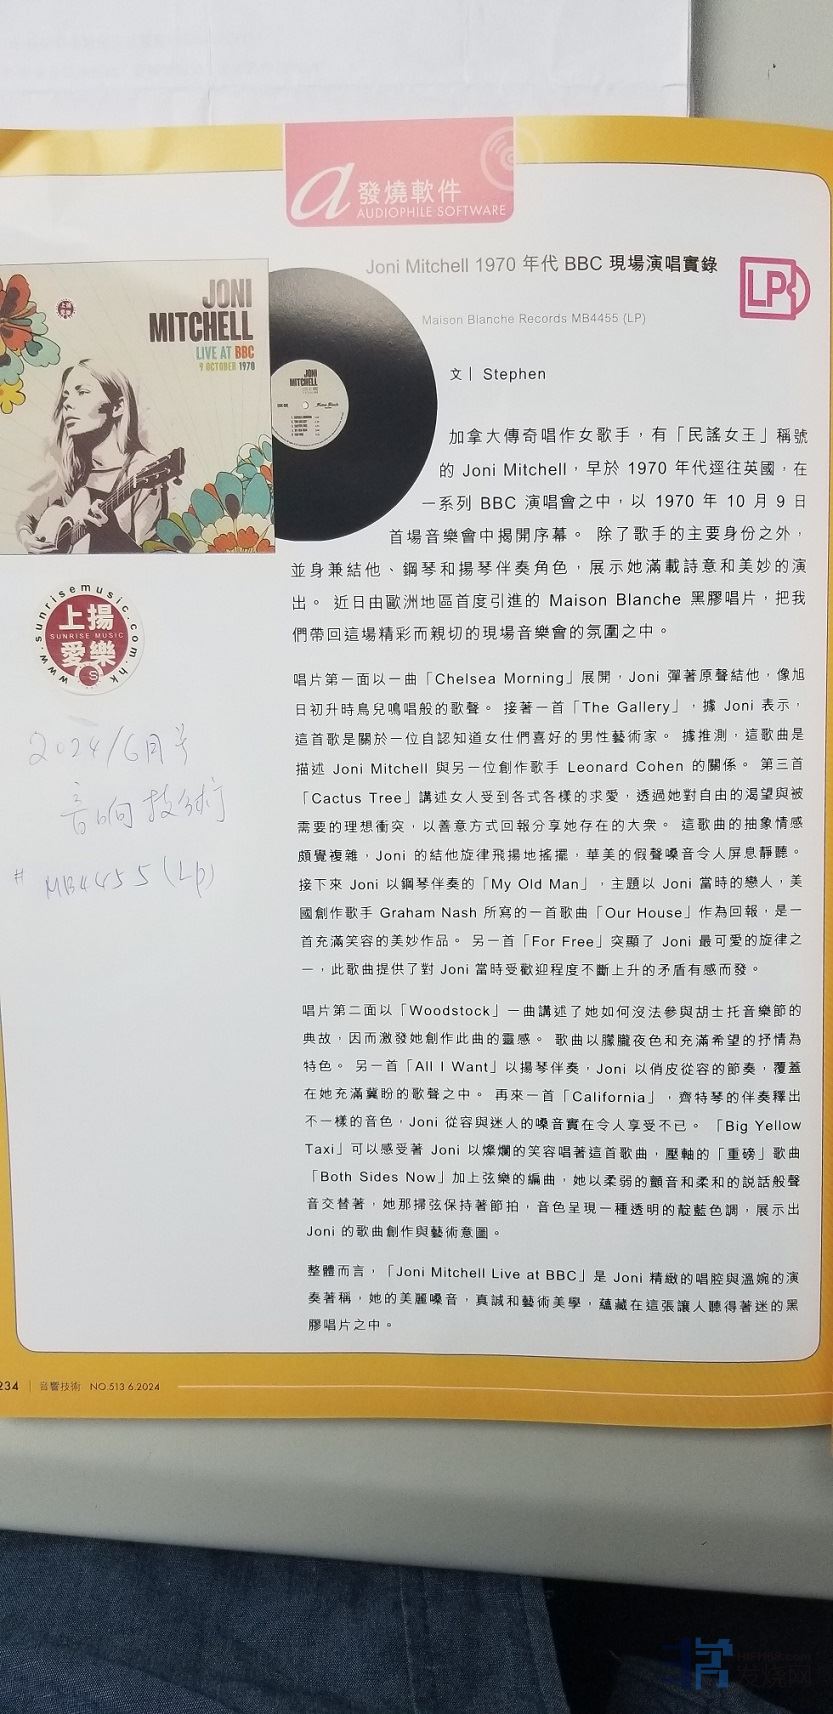 發燒軟件
AUDIOPHILE SOFTWARE
Joni Mitchell 1970 年代 BBC 現場演唱實錄
LP
Maison Blanche Records MB4455 (LP)
文｜ Stephen
JONI
MITCHELL
LIVE AT BBC
9 OCTOBER 1970
上揚
愛樂
JONI
MITCHELL
加拿大傳奇唱作女歌手，有「民謠女王」稱號
的 Joni Mitchell，早於 1970 年代逕往英國，在
一系列 BBC 演唱會之中，以 1970 年 10 月 9 日
首場音樂會中揭開序幕。 除了歌手的主要身份之外，
並身兼結他、鋼琴和揚琴伴奏角色，展示她滿載詩意和美妙的演
出。 近日由歐洲地區首度引進的 Maison Blanche 黑膠唱片，把我
們帶回這場精彩而親切的現場音樂會的氛圍之中。
www.sunrisemusic.com.hk
上揚
SUNRISE MUSIC
愛樂
S
2024/6月号
音响技術
# MB4455 (LP)
唱片第一面以一曲「Chelsea Morning」展開，Joni 彈著原聲結他，像旭
日初升時鳥兒鳴唱般的歌聲。 接著一首「The Gallery」，據 Joni 表示，
這首歌是關於一位自認知道女仕們喜好的男性藝術家。 據推測，這歌曲是
描述 Joni Mitchell 與另一位創作歌手 Leonard Cohen 的關係。 第三首
「Cactus Tree」講述女人受到各式各樣的求愛，透過她對自由的渴望與被
需要的理想衝突，以善意方式回報分享她存在的大衆。 這歌曲的抽象情感
頗覺複雜，Joni 的結他旋律飛揚地搖擺，華美的假聲嗓音令人屏息靜聽。
接下來 Joni 以鋼琴伴奏的「My Old Man」，主題以 Joni 當時的戀人，美
國創作歌手 Graham Nash 所寫的一首歌曲「Our House」作為回報，是一
首充滿笑容的美妙作品。 另一首「For Free」突顯了 Joni 最可愛的旋律之
一，此歌曲提供了對 Joni 當時受歡迎程度不斷上升的矛盾有感而發。
唱片第二面以「Woodstock」一曲講述了她如何沒法參與胡士托音樂節的
典故，因而激發她創作此曲的靈感。 歌曲以朦朧夜色和充滿希望的抒情為
特色。 另一首「All I Want」以揚琴伴奏，Joni 以俏皮從容的節奏，覆蓋
在她充滿冀盼的歌聲之中。 再來一首「California」，齊特琴的伴奏釋出
不一樣的音色，Joni 從容與迷人的嗓音實在令人享受不已。 「Big Yellow
Taxi」可以感受著 Joni 以燦爛的笑容唱著這首歌曲，壓軸的「重磅」歌曲
「Both Sides Now」加上弦樂的編曲，她以柔弱的顫音和柔和的說話般聲
音交替著，她那掃弦保持著節拍，音色呈現一種透明的靛藍色調，展示出
Joni 的歌曲創作與藝術意圖。
整體而言，「Joni Mitchell Live at BBC」是 Joni 精緻的唱腔與溫婉的演
奏著稱，她的美麗嗓音，真誠和藝術美學，蘊藏在這張讓人聽得著迷的黑
膠唱片之中。
234 ｜ 音響技術 NO.513 6.2024
HIFIH88.com
发烧网